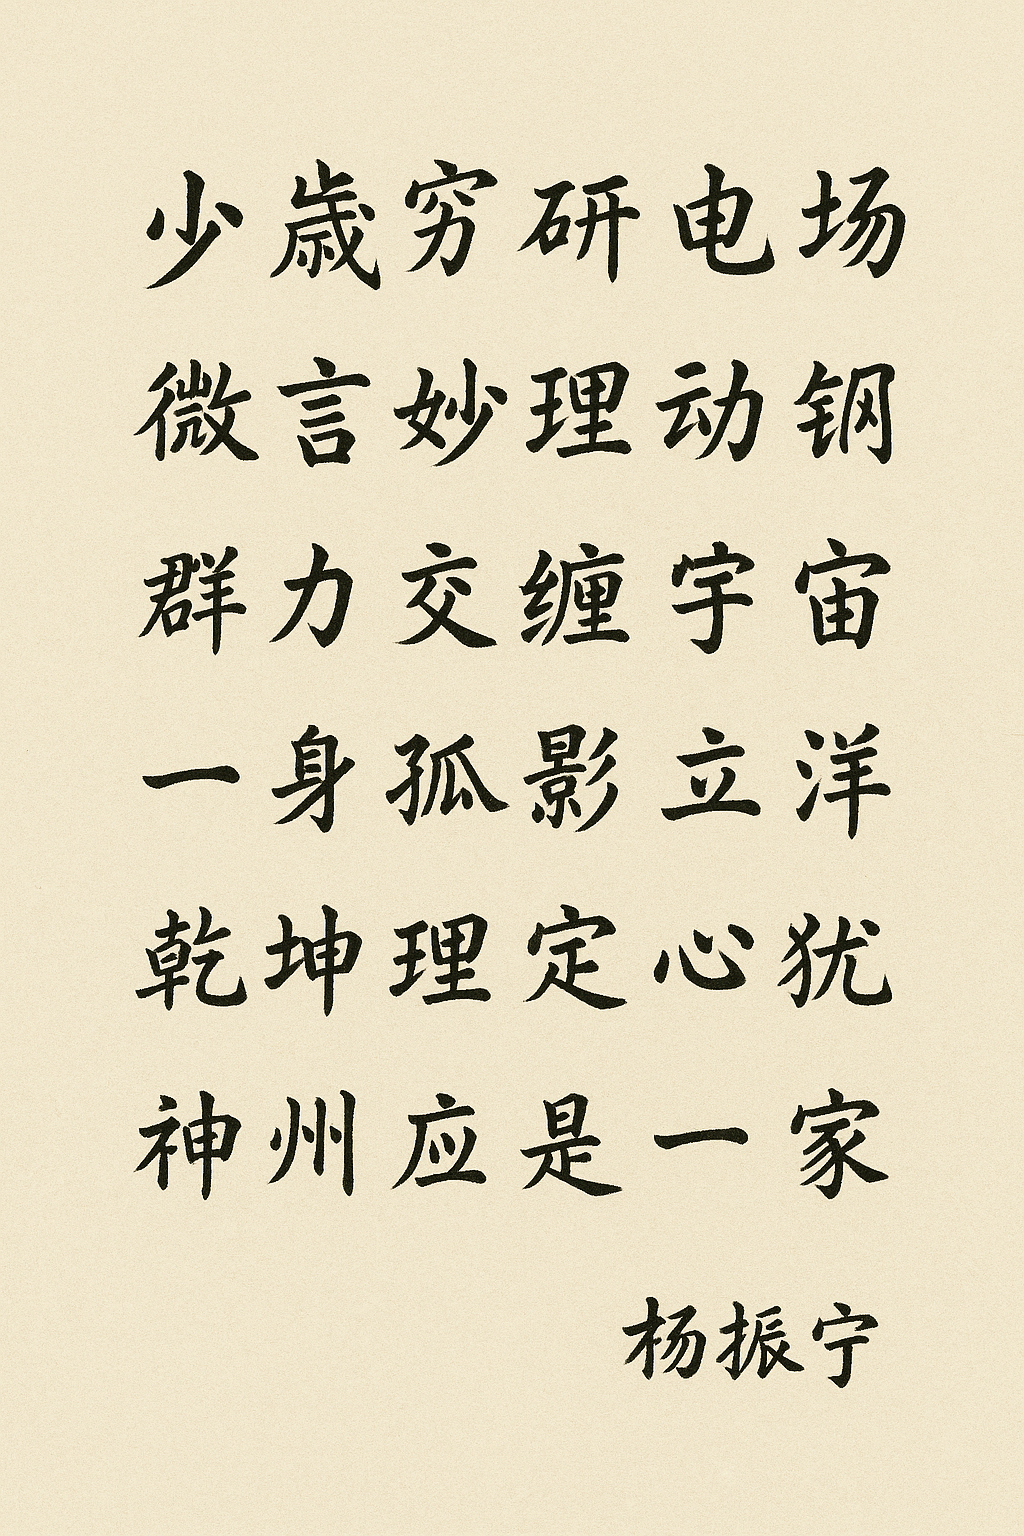 少歳穷研电场
微言妙理动钢
群力交缠宇宙
一身孤影立洋
乾坤理定心犹
神州应是一家
杨振宁